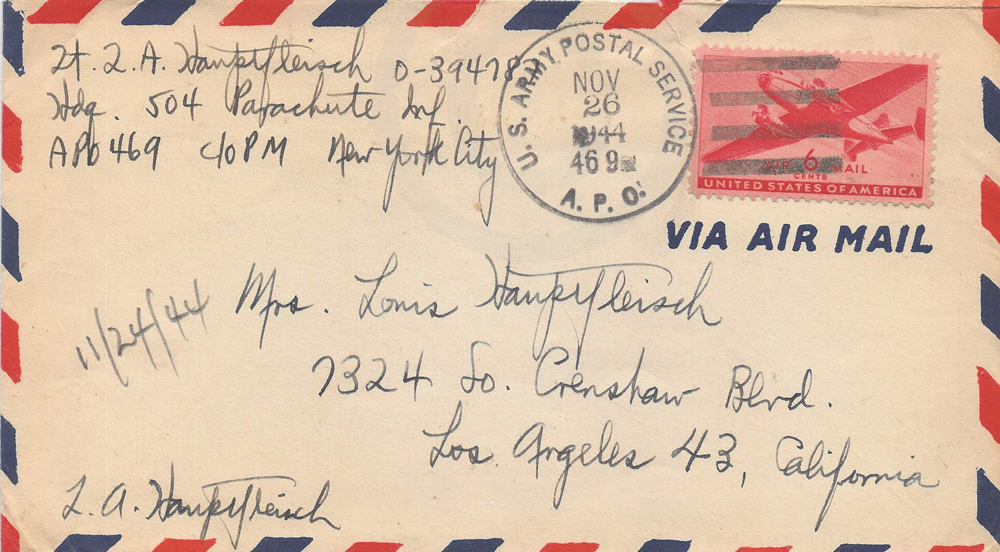 Lt. L. A. Hauptfleisch O-394788
Hdq. 504 Parachute Inf.
APO 469 c/o PM New York City
U. S. ARMY POSTAL SERVICE
NOV
26
1944
469
A. P. O.
AIR 6 MAIL
CENTS
UNITED STATES OF AMERICA
VIA AIR MAIL
11/24/44
Mrs. Louis Hauptfleisch
7324 So. Crenshaw Blvd.
Los Angeles 43, California
L. A. Hauptfleisch